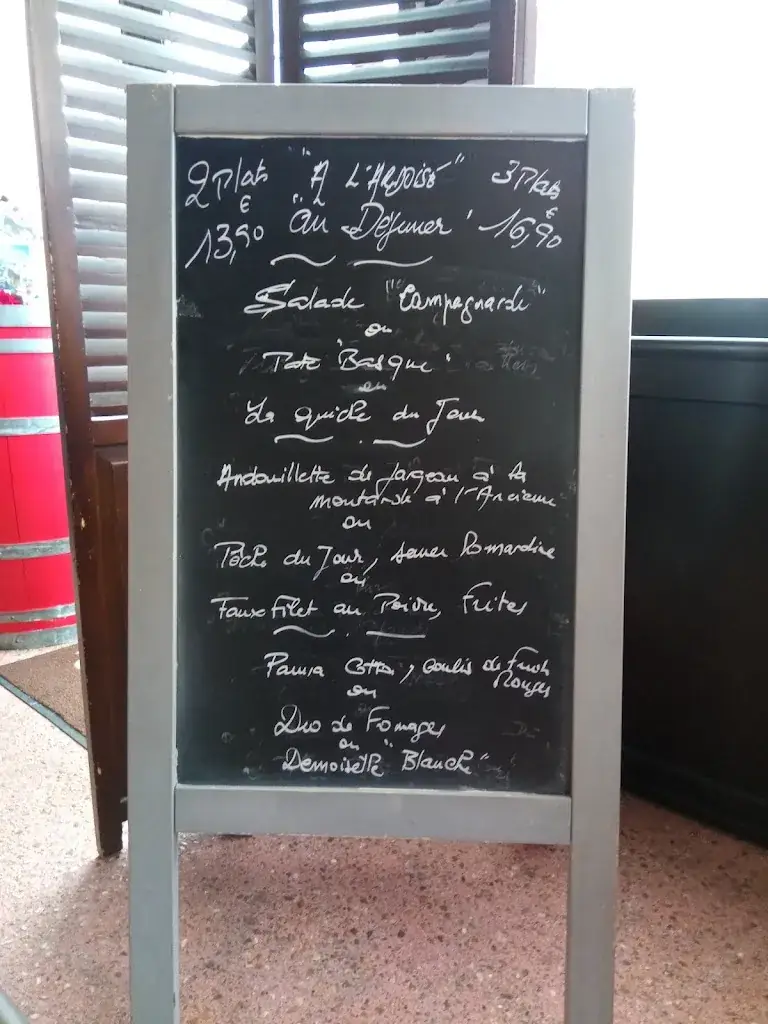 2 Plats "A L'ARDOISE" 3 Plats
13,90 € "au Déjeuner" 16,90 €
Salade "Campagnarde"
ou
Pate "Basque"
ou
La quiche du Jour
Andouillette de Jargeau à la
moutarde à l'Ancienne
ou
Pêche du Jour, sauce Domardine
ou
Faux Filet au Poivre, Frites
Panna Cotta, coulis de Fruits
Rouges
ou
Duo de Fromages
ou
Demoiselle "Blanche"